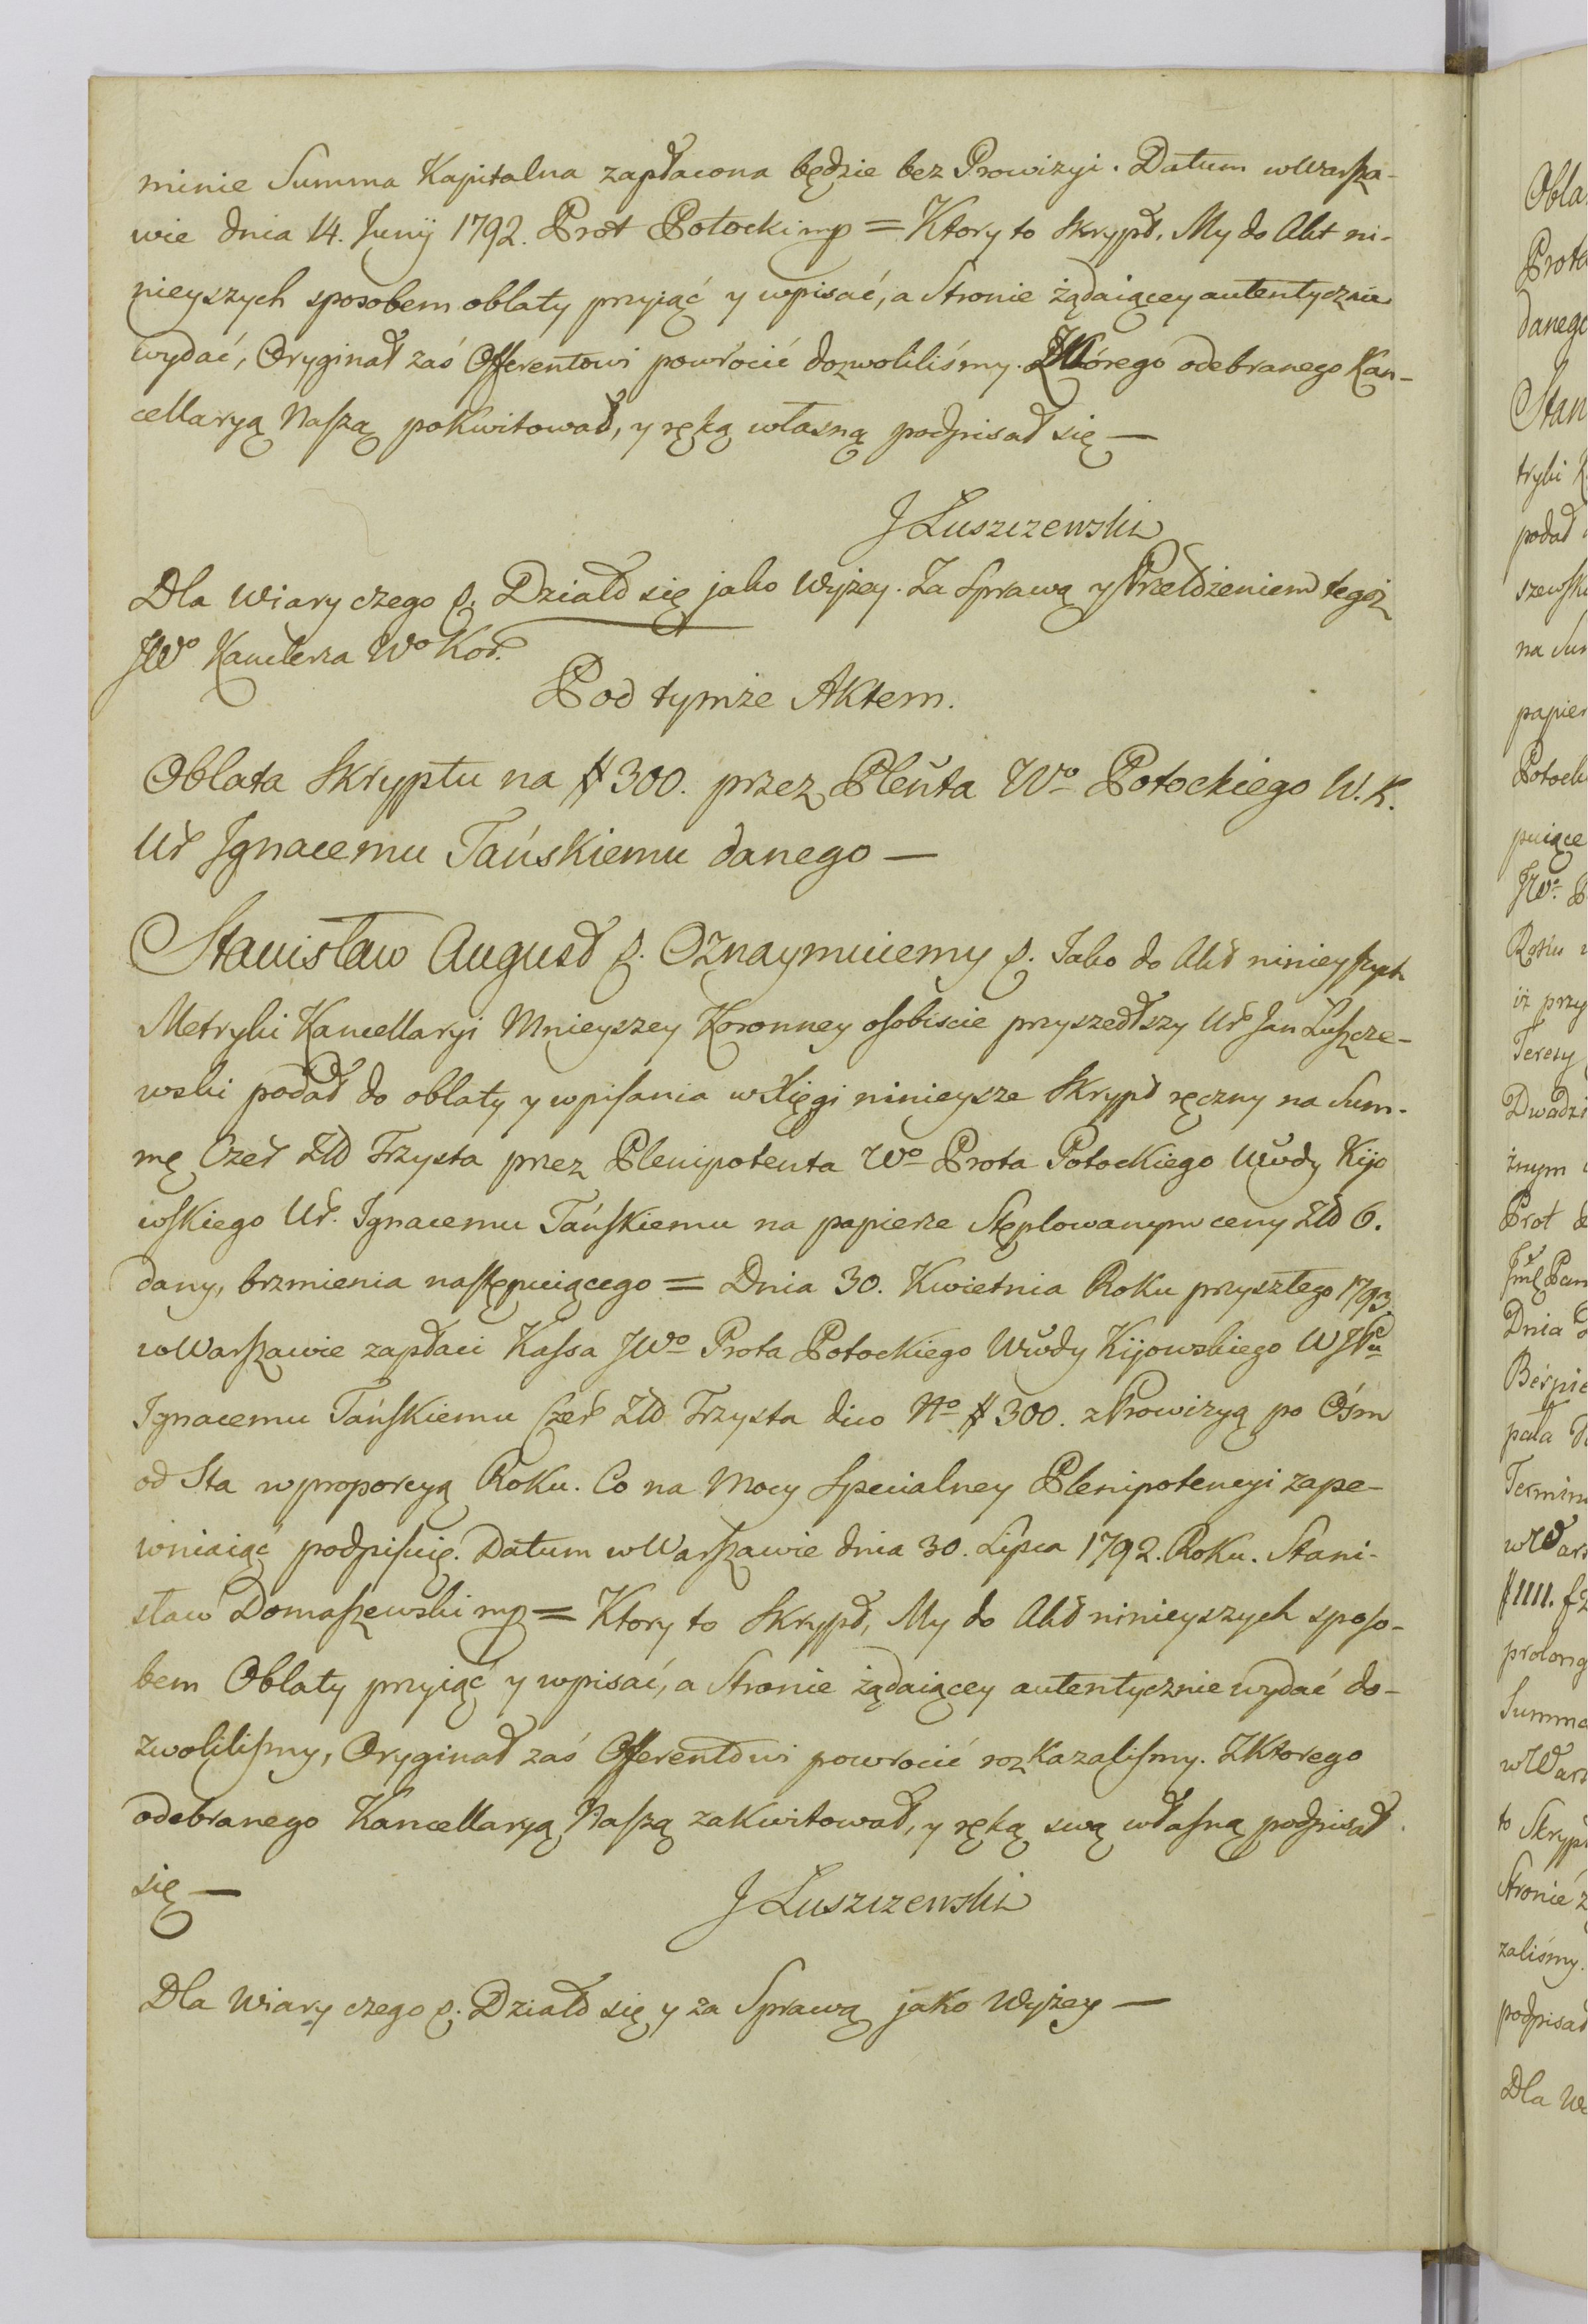 minie Summa Kapitalna zapłacona będzie bez Prowizyi. Datum w Warsza-
wie dnia 14. Junij 1792. Prot Potocki mp = Ktory to Skrypt, My do Akt ni-
nieyszych sposobem oblaty przyiąć y wpisać, a Stronie żądaiącey autentycznie
wydać, Oryginał zaś Offerentowi powrocić dozwoliliśmy. Z którego odebranego Kan-
cellaryą Naszą pokwitował, y ręką własną podpisał się —
J Luszczewski
Dla Wiary czego p. Działo się jako Wyżey. Za Sprawą y Przełożeniem tegoż
JWo Kanclerza Wo Kor.
Pod tymże Aktem.
Oblata Skryptu na # 300. przez Pleńta Wo Potockiego W. K.
Ur Ignacemu Tańskiemu danego —
Stanisław August p. Oznaymuiemy p. Jako do Akt ninieyszych
Metryki Kancellaryi Mnieyszey Koronney osobiscie przyszedłszy Ur Jan Luszcze-
wski podał do oblaty y wpisania w Xięgi ninieysze Skrypt ręczny na Sum-
mę Czer Złł Trzysta przez Plenipotenta Wo Prota Potockiego Wwdy Kijo
wskiego Ur. Ignacemu Tańskiemu na papierze Stęplowanym ceny Złł 6.
dany, brzmienia następuiącego = Dnia 30. Kwietnia Roku przyszłego 1793
w Warszawie zapłaci Kassa JWo Prota Potockiego Wwdy Kijowskiego WJPu
Ignacemu Tańskiemu Czer Złł Trzysta dico No # 300. z Prowizyą po Ośm
od Sta w proporcyą Roku. Co na Mocy Specialney Plenipotencyi zape-
wniaiąc podpisuię. Datum w Warszawie dnia 30. Lipca 1792. Roku. Stani-
sław Domaszewski mp = Ktory to Skrypt, My do Akt ninieyszych sposo-
bem Oblaty przyiąć y wpisać, a Stronie żądaiącey autentycznie wydać do-
zwolilismy, Oryginał zaś Offerentowi powrocić rozkazalismy. Z Ktorego
odebranego Kancellaryą Naszą zakwitował, y ręką swą własną podpisał
się —
J Luszczewski
Dla Wiary czego p. Działo się y za Sprawą jako Wyżey —